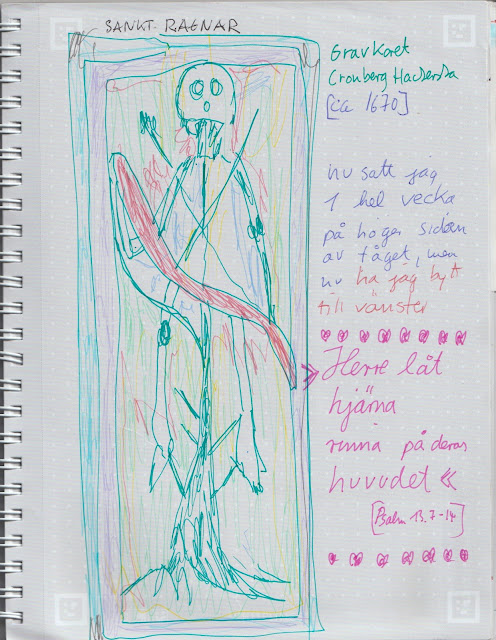 SANKT. RAGNAR
Gravkoret
Cronberg
[ca 1670]
nu satt jag
1 hel vecka
på höger sidan
av tåget, men
nu ha jag bytt
till vänster
» Herre låt
hjärna
rinna på deras
huvudet «
[Psalm 13.7-14]